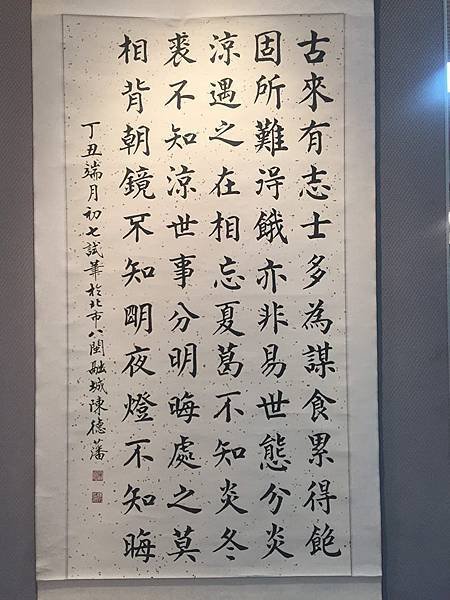 古來有志士多為謀食累得飽
固所難淂餓亦非易世態分炎
涼遇之在相忘夏葛不知炎冬
裘不知涼世事分明晦處之莫
相背朝鏡不知明夜燈不知晦
丁丑端月初七試筆於北市八閩融城陳德藩